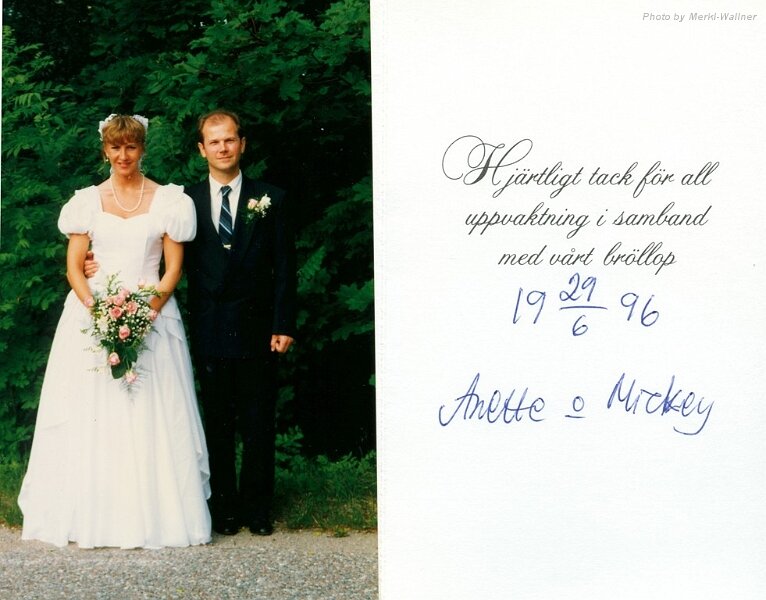 Photo by Merkl-Wallner
Hjärtligt tack för all
uppvaktning i samband
med vårt bröllop
19 29/6 96
Anette o Mickey